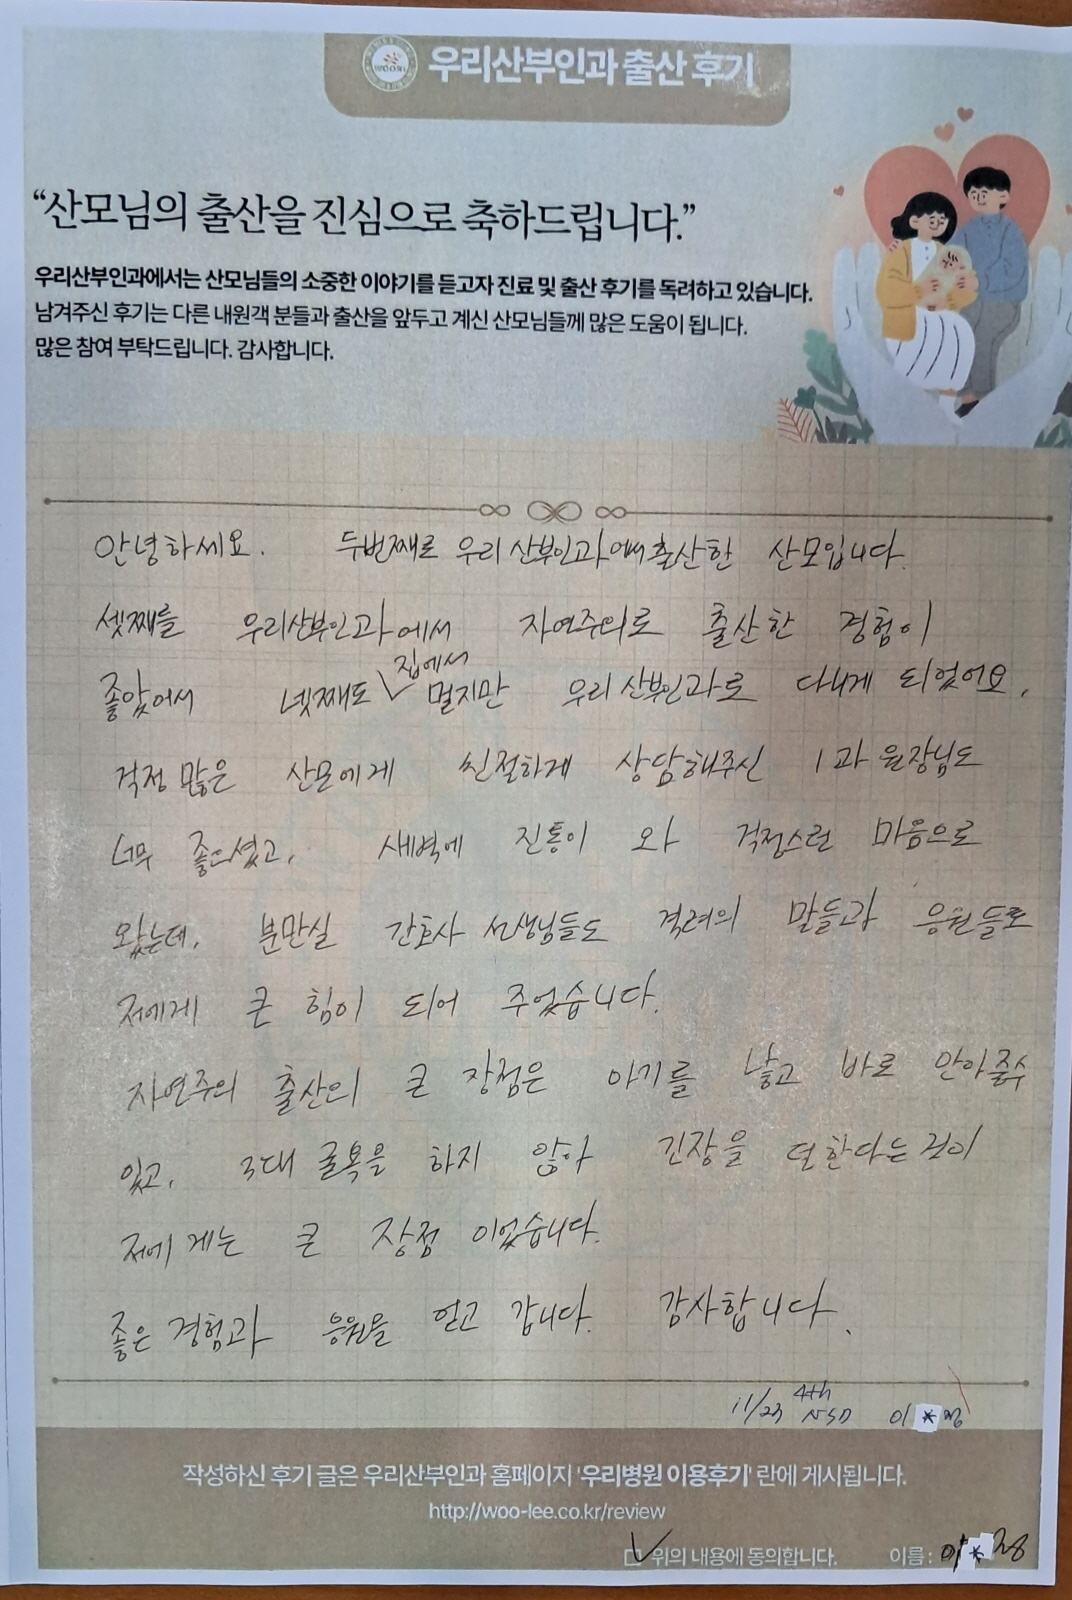 우리산부인과 출산 후기
“산모님의 출산을 진심으로 축하드립니다.”
우리산부인과에서는 산모님들의 소중한 이야기를 듣고자 진료 및 출산 후기를 독려하고 있습니다.
남겨주신 후기는 다른 내원객 분들과 출산을 앞두고 계신 산모님들께 많은 도움이 됩니다.
많은 참여 부탁드립니다. 감사합니다.
안녕하세요. 두번째로 우리 산부인과에서 출산한 산모입니다.
셋째를 우리산부인과에서 자연주의로 출산한 경험이
좋았어서 넷째도 집에서 멀지만 우리 산부인과로 다니게 되었어요.
걱정 많은 산모에게 친절하게 상담해주신 1과 원장님도
너무 좋으셨고, 새벽에 진통이 와 걱정스런 마음으로
왔는데, 분만실 간호사 선생님들도 격려의 말들과 응원들로
저에게 큰 힘이 되어 주었습니다.
자연주의 출산의 큰 장점은 아기를 낳고 바로 안아줄수
있고, 3대 굴욕을 하지 않아 긴장을 덜한다는 것이
저에게는 큰 장점 이었습니다.
좋은 경험과 응원을 얻고 갑니다. 감사합니다.
11/23 4th NSD 이*정
작성하신 후기 글은 우리산부인과 홈페이지 '우리병원 이용후기' 란에 게시됩니다.
http://woo-lee.co.kr/review
위의 내용에 동의합니다. 이름 : 이*정